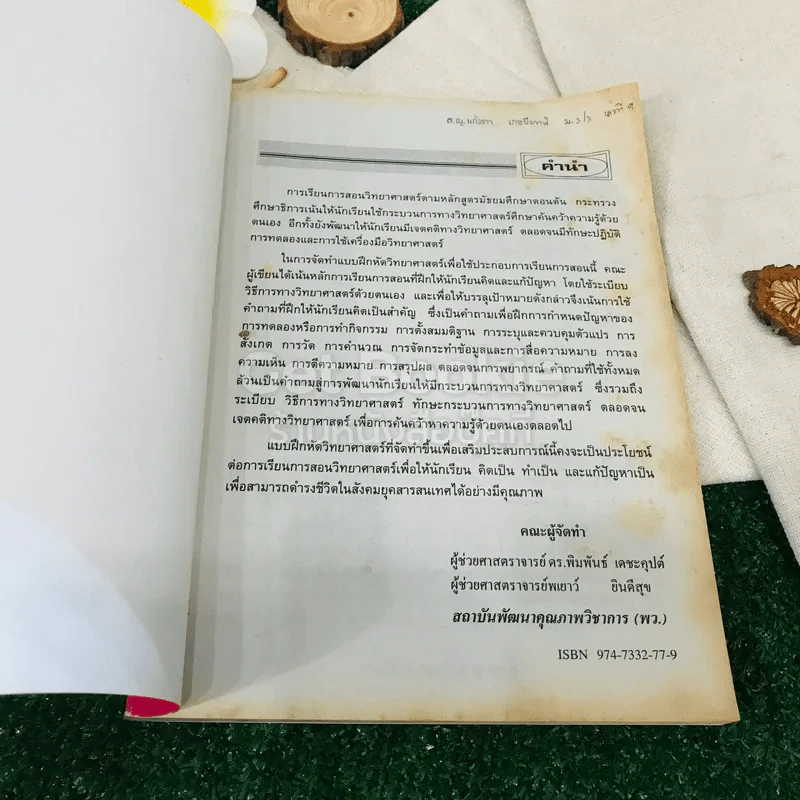 ด.ญ. ม.3/3 เลขที่ 9
คำนำ
การเรียนการสอนวิทยาศาสตร์ตามหลักสูตรมัธยมศึกษาตอนต้น กระทรวง
ศึกษาธิการเน้นให้นักเรียนใช้กระบวนการทางวิทยาศาสตร์ศึกษาค้นคว้าความรู้ด้วย
ตนเอง อีกทั้งยังพัฒนาให้นักเรียนมีเจตคติทางวิทยาศาสตร์ ตลอดจนมีทักษะปฏิบัติ
การทดลองและการใช้เครื่องมือวิทยาศาสตร์
ในการจัดทำแบบฝึกหัดวิทยาศาสตร์เพื่อใช้ประกอบการเรียนการสอนนี้ คณะ
ผู้เขียนได้เน้นหลักการเรียนการสอนที่ฝึกให้นักเรียนคิดและแก้ปัญหา โดยใช้ระเบียบ
วิธีการทางวิทยาศาสตร์ด้วยตนเอง และเพื่อให้บรรลุเป้าหมายดังกล่าวจึงเน้นการใช้
คำถามที่ฝึกให้นักเรียนคิดเป็นสำคัญ ซึ่งเป็นคำถามเพื่อฝึกการกำหนดปัญหาของ
การทดลองหรือการทำกิจกรรม การตั้งสมมติฐาน การระบุและควบคุมตัวแปร การ
สังเกต การวัด การคำนวณ การจัดกระทำข้อมูลและการสื่อความหมาย การลง
ความเห็น การตีความหมาย การสรุปผล ตลอดจนการพยากรณ์ คำถามที่ใช้ทั้งหมด
ล้วนเป็นคำถามสู่การพัฒนานักเรียนให้มีกระบวนการทางวิทยาศาสตร์ ซึ่งรวมถึง
ระเบียบ วิธีการทางวิทยาศาสตร์ ทักษะกระบวนการทางวิทยาศาสตร์ ตลอดจน
เจตคติทางวิทยาศาสตร์ เพื่อการค้นคว้าหาความรู้ด้วยตนเองตลอดไป
แบบฝึกหัดวิทยาศาสตร์ที่จัดทำขึ้นเพื่อเสริมประสบการณ์นี้คงจะเป็นประโยชน์
ต่อการเรียนการสอนวิทยาศาสตร์เพื่อให้นักเรียน คิดเป็น ทำเป็น และแก้ปัญหาเป็น
เพื่อสามารถดำรงชีวิตในสังคมยุคสารสนเทศได้อย่างมีคุณภาพ
คณะผู้จัดทำ
ผู้ช่วยศาสตราจารย์ ดร.พิมพันธ์ เดชะคุปต์
ผู้ช่วยศาสตราจารย์พเยาว์ ยินดีสุข
สถาบันพัฒนาคุณภาพวิชาการ (พว.)
ISBN 974-7332-77-9